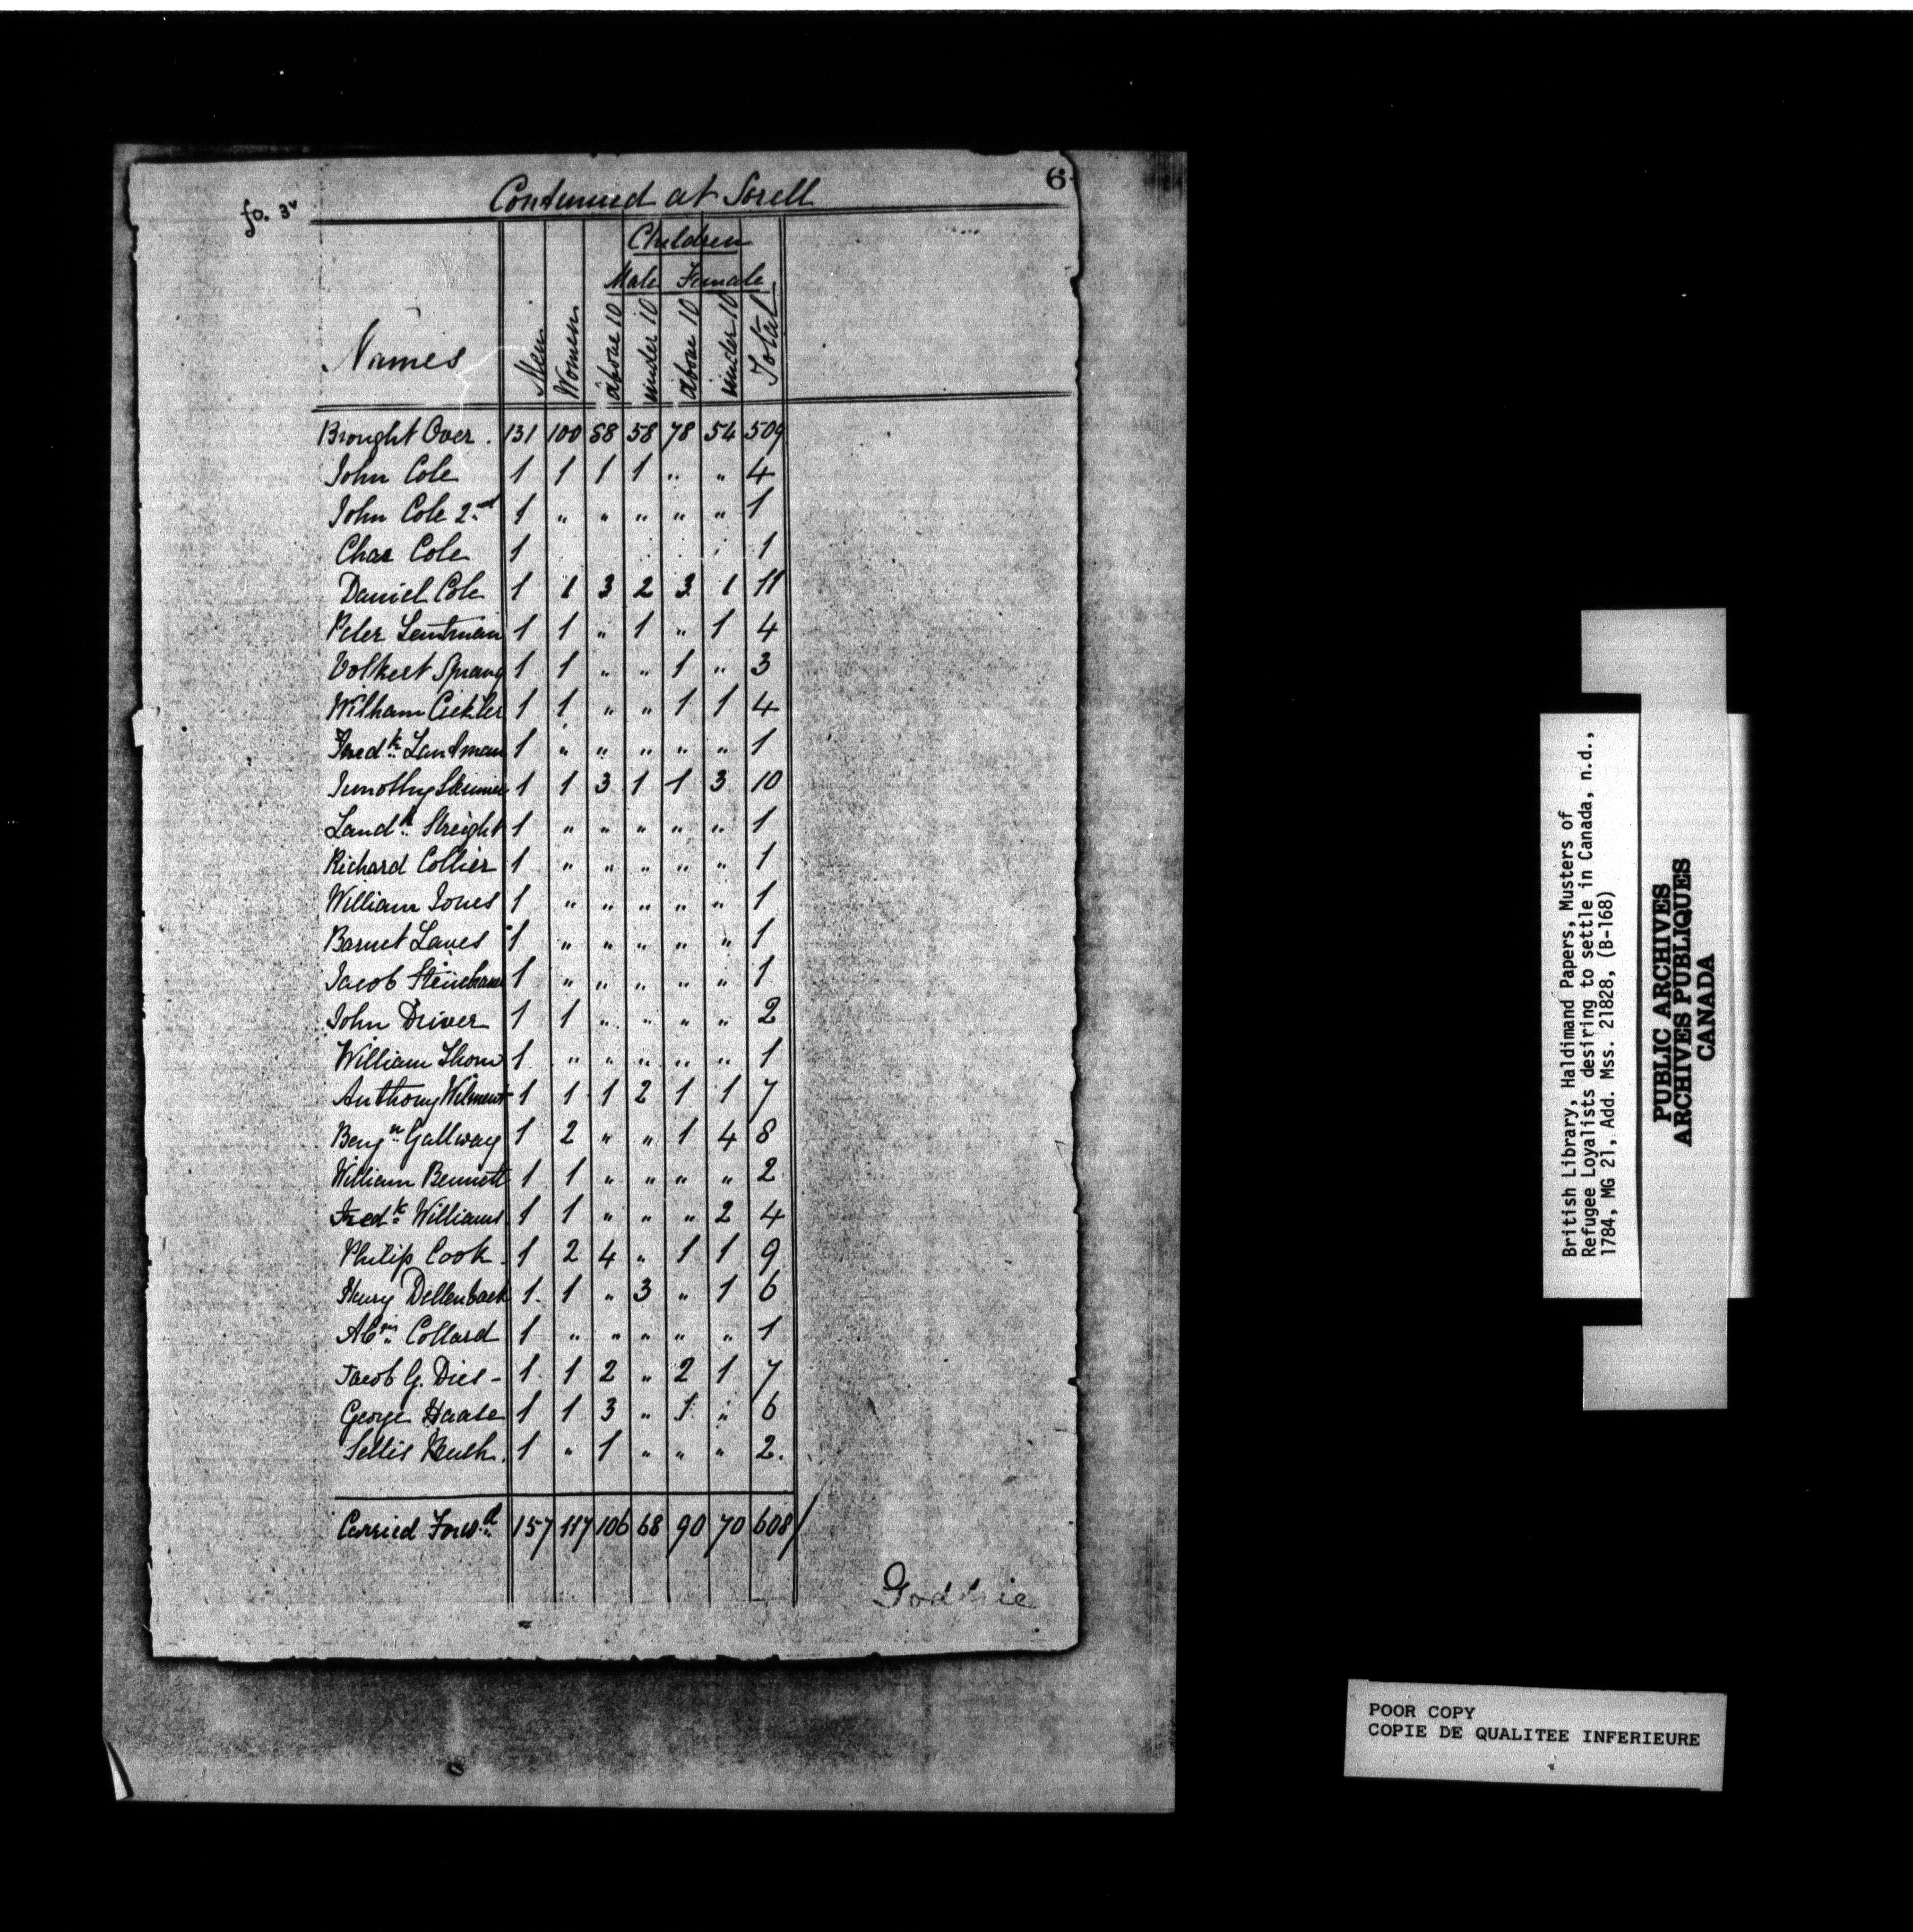 6
fo. 3v
Continued at Sorell
Children
Male Female
Names Men Women above 10 under 10 above 10 under 10 Total
Brought Over . 131 100 88 58 78 54 509
John Cole 1 1 1 1 " " 4
John Cole 2nd 1 " " " " " 1
Chas Cole 1 1
Daniel Cole 1 1 3 2 3 1 11
Peter Lentman 1 1 " 1 " 1 4
Volkert Sprang 1 1 " " 1 " 3
William Cickler 1 1 " " 1 1 4
Fredk Lantman 1 " " " " " 1
Timothy Skinner 1 1 3 1 1 3 10
Landk Streight 1 " " " " " 1
Richard Collier 1 " " " " " 1
William Jones 1 " " " " " 1
Barnet Lanes 1 " " " " " 1
Jacob 1 " " " " " 1
John Driver 1 1 " " " " 2
William Thorn 1 " " " " " 1
Anthony Wilment 1 1 1 2 1 1 7
Benjn Gallway 1 2 " " 1 4 8
William Bennett 1 1 " " " " 2
Fredk Williams 1 1 " " " 2 4
Philip Cook 1 2 4 " 1 1 9
Henry Dellenback 1 1 " 3 " 1 6
Abm Collard 1 " " " " " 1
Jacob G. Dies - 1 1 2 " 2 1 7
George Haale 1 1 3 " 1 " 6
Sellis Bush . 1 " 1 " " " 2.
Carried Forwd 157 117 106 68 90 70 608/
British Library, Haldimand Papers, Musters of
Refugee Loyalists desiring to settle in Canada, n.d.,
1784, MG 21, Add. Mss. 21828, (B-168)
PUBLIC ARCHIVES
ARCHIVES PUBLIQUES
CANADA
POOR COPY
COPIE DE QUALITEE INFERIEURE